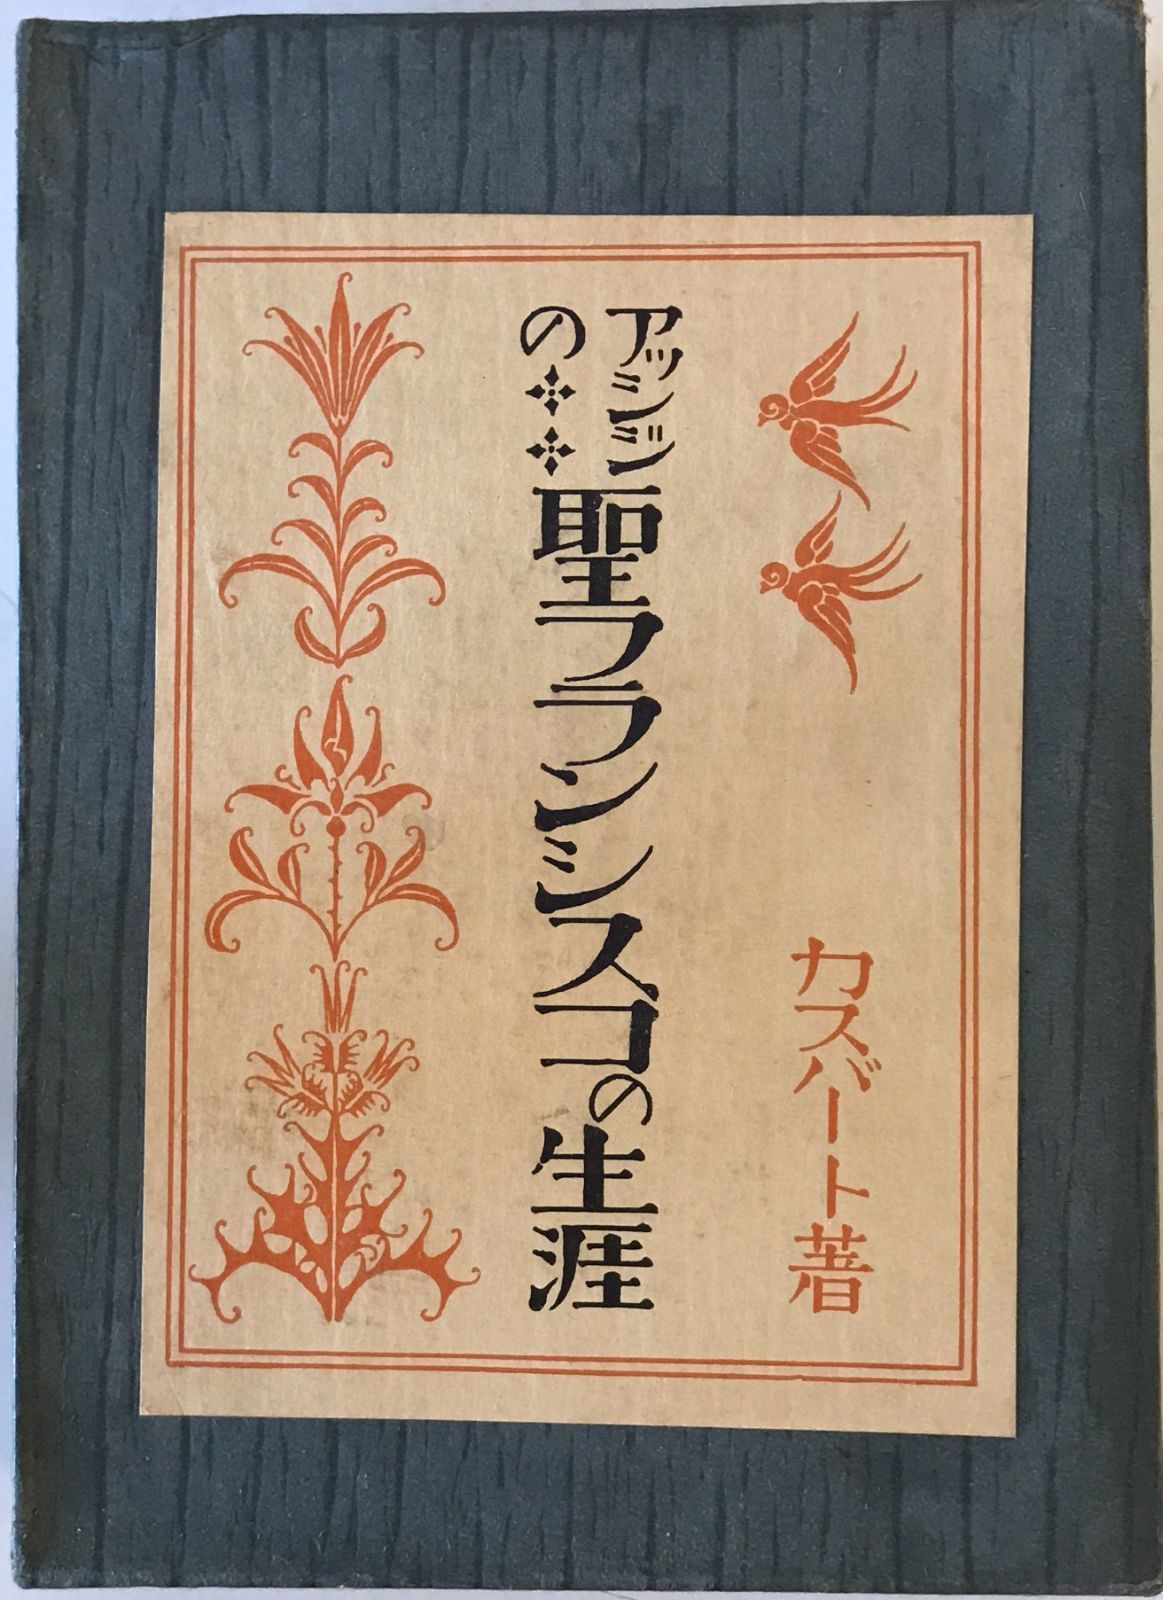 カスバート著
アッシジの
聖フランシスコの生涯